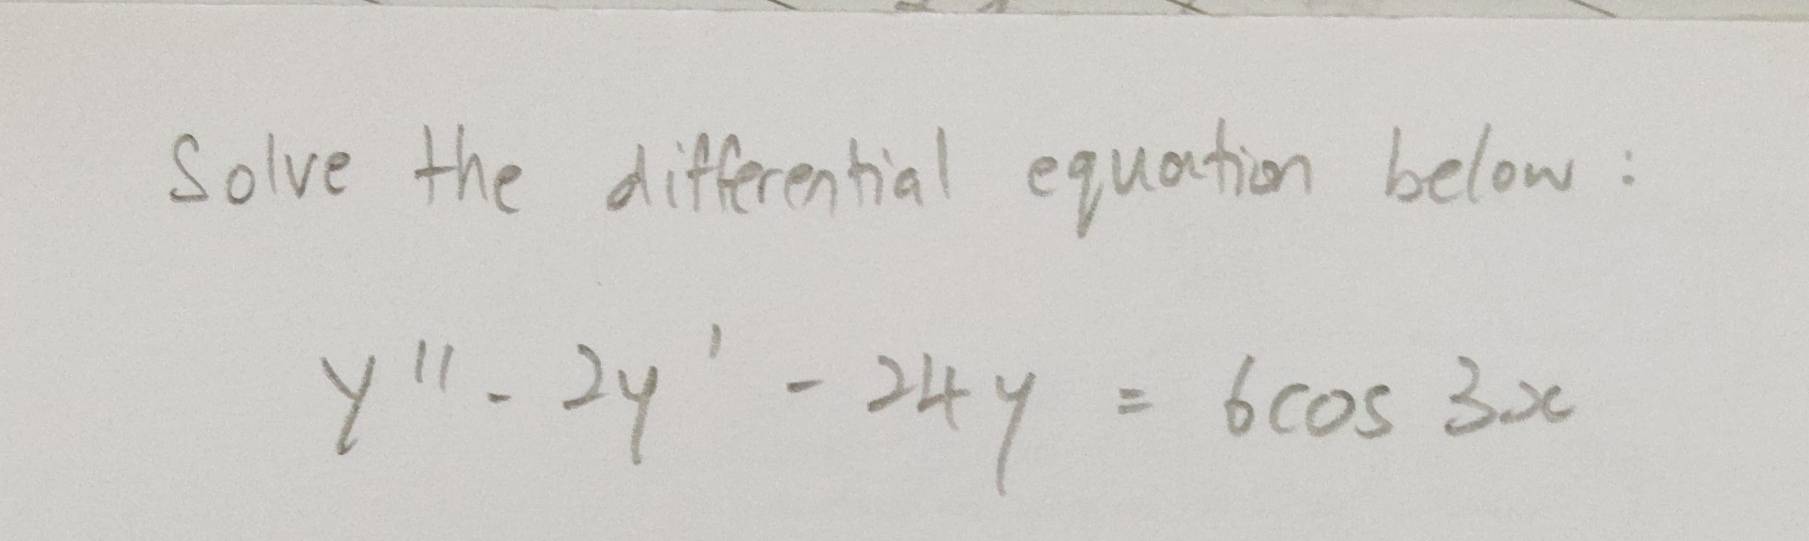 Solve the differential equation below:
y'' - 2y' - 24y = 6cos 3x